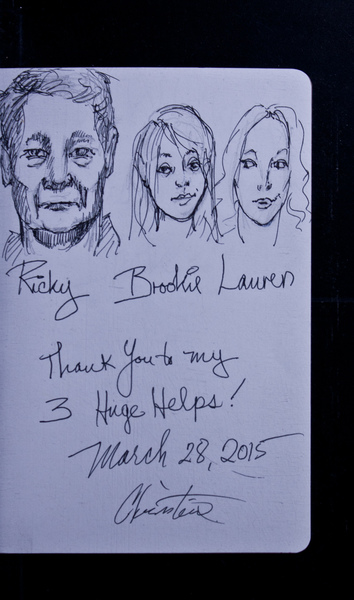 Ricky Brookie Lauren
Thank You to my
3 Huge Helps!
March 28, 2015